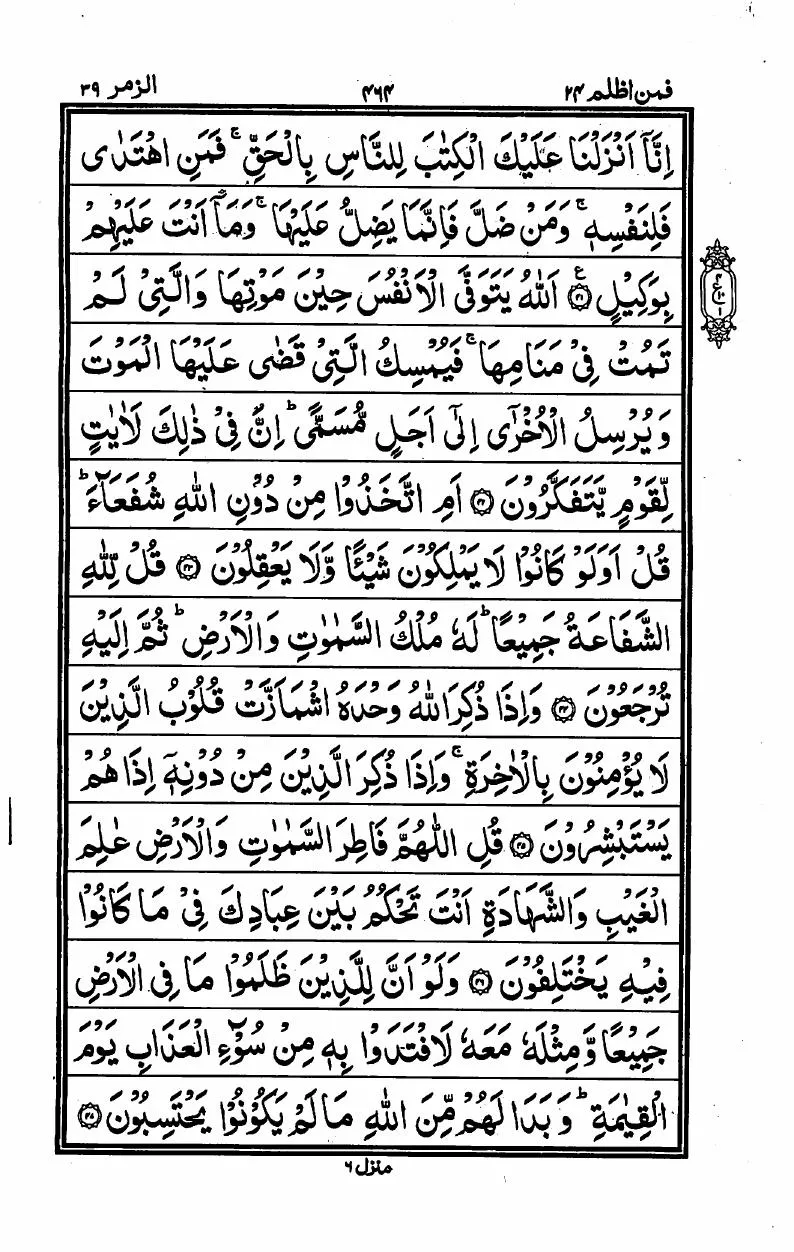 فمن اظلم ۲۴ ۴۶۴ الزمر ۳۹
اِنَّاۤ اَنْزَلْنَا عَلَيْكَ الْكِتٰبَ لِلنَّاسِ بِالْحَقِّ ۚ فَمَنِ اهْتَدٰى
فَلِنَفْسِهٖ ۚ وَمَنْ ضَلَّ فَاِنَّمَا يَضِلُّ عَلَيْهَا ۚ وَمَاۤ اَنْتَ عَلَيْهِمْ
بِوَكِيْلٍ ۟ع ۴۱ اَللّٰهُ يَتَوَفَّى الْاَنْفُسَ حِيْنَ مَوْتِهَا وَالَّتِيْ لَمْ
تَمُتْ فِيْ مَنَامِهَا ۚ فَيُمْسِكُ الَّتِيْ قَضٰى عَلَيْهَا الْمَوْتَ
وَيُرْسِلُ الْاُخْرٰۤى اِلٰۤى اَجَلٍ مُّسَمًّى ؕ اِنَّ فِيْ ذٰلِكَ لَاٰيٰتٍ
لِّقَوْمٍ يَّتَفَكَّرُوْنَ ۴۲ اَمِ اتَّخَذُوْا مِنْ دُوْنِ اللّٰهِ شُفَعَآءَ ؕ
قُلْ اَوَلَوْ كَانُوْا لَا يَمْلِكُوْنَ شَيْـًٔا وَّلَا يَعْقِلُوْنَ ۴۳ قُلْ لِّلّٰهِ
الشَّفَاعَةُ جَمِيْعًا ؕ لَهٗ مُلْكُ السَّمٰوٰتِ وَالْاَرْضِ ؕ ثُمَّ اِلَيْهِ
تُرْجَعُوْنَ ۴۴ وَاِذَا ذُكِرَ اللّٰهُ وَحْدَهُ اشْمَاَزَّتْ قُلُوْبُ الَّذِيْنَ
لَا يُؤْمِنُوْنَ بِالْاٰخِرَةِ ۚ وَاِذَا ذُكِرَ الَّذِيْنَ مِنْ دُوْنِهٖۤ اِذَا هُمْ
يَسْتَبْشِرُوْنَ ۴۵ قُلِ اللّٰهُمَّ فَاطِرَ السَّمٰوٰتِ وَالْاَرْضِ عٰلِمَ
الْغَيْبِ وَالشَّهَادَةِ اَنْتَ تَحْكُمُ بَيْنَ عِبَادِكَ فِيْ مَا كَانُوْا
فِيْهِ يَخْتَلِفُوْنَ ۴۶ وَلَوْ اَنَّ لِلَّذِيْنَ ظَلَمُوْا مَا فِي الْاَرْضِ
جَمِيْعًا وَّمِثْلَهٗ مَعَهٗ لَافْتَدَوْا بِهٖ مِنْ سُوْٓءِ الْعَذَابِ يَوْمَ
الْقِيٰمَةِ ؕ وَبَدَا لَهُمْ مِّنَ اللّٰهِ مَا لَمْ يَكُوْنُوْا يَحْتَسِبُوْنَ ۴۷
منزل ۶